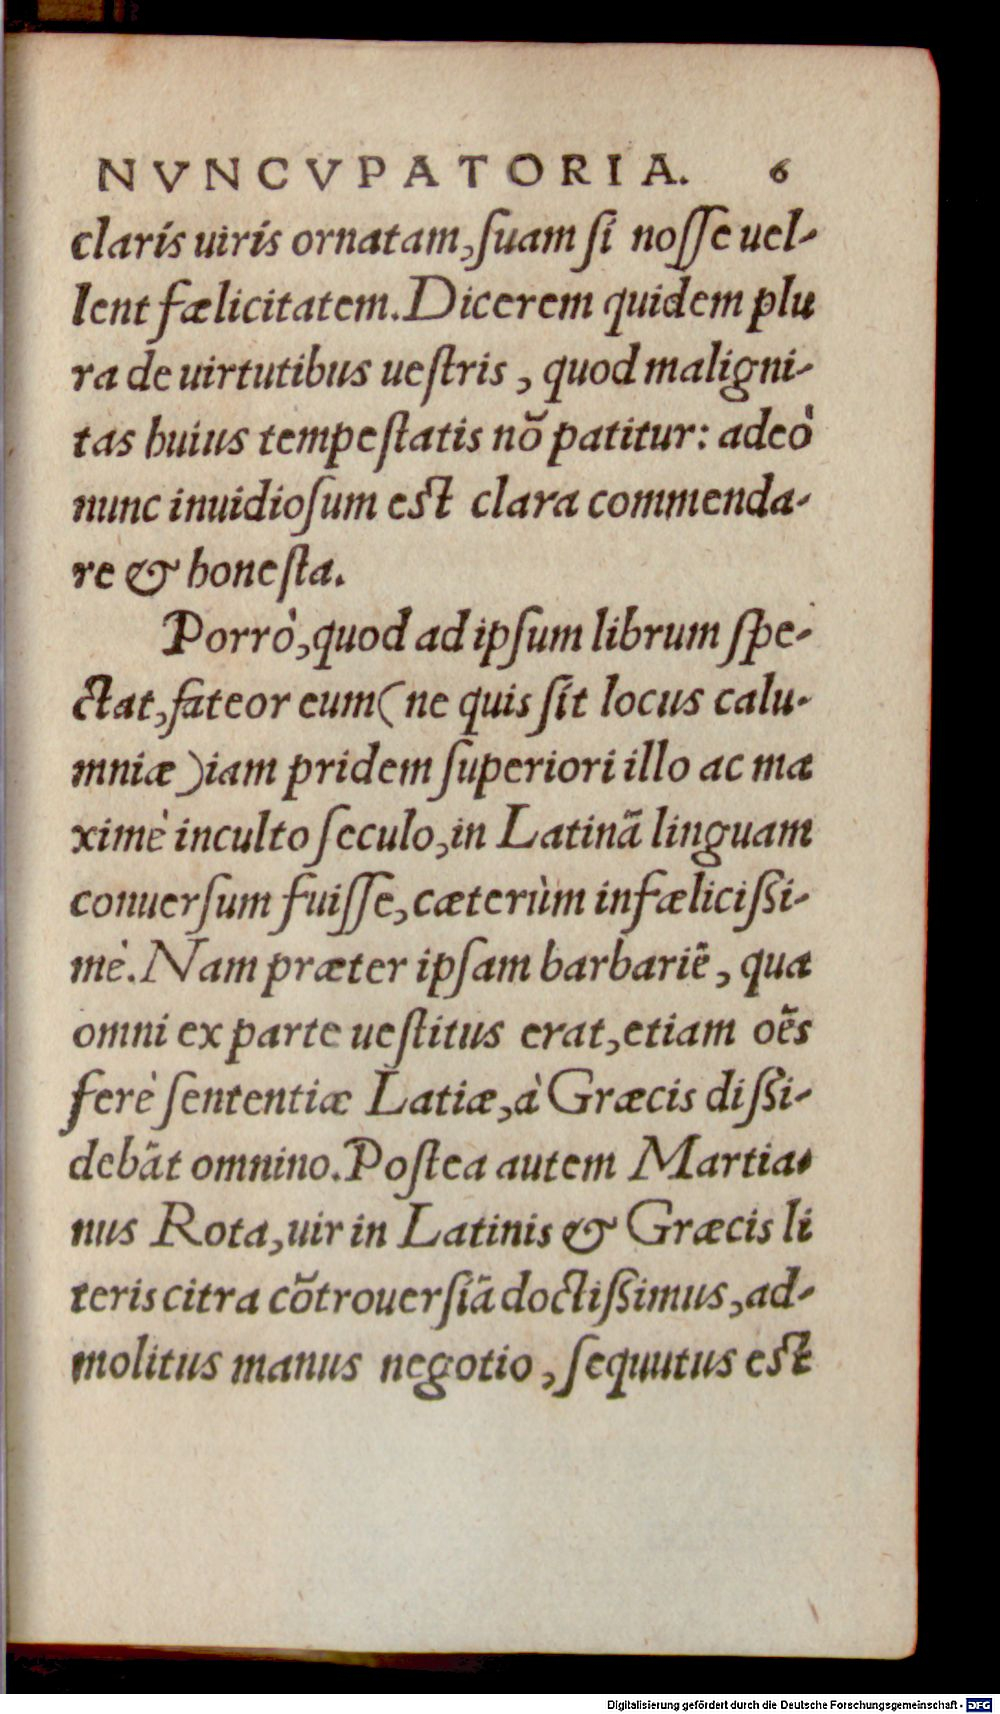 NVNCVPATORIA. 6
claris uiris ornatam, ſuam ſi noſſe uel-
lent fælicitatem. Dicerem quidem plu
ra de uirtutibus ueſtris, quod maligni-
tas huius tempeſtatis nõ patitur: adeò
nunc inuidioſum eſt clara commenda-
re & honeſta.
Porrò, quod ad ipſum librum ſpe-
ctat, fateor eum (ne quis ſit locus calu-
mniæ) iam pridem ſuperiori illo ac ma
ximè inculto ſeculo, in Latinã linguam
conuerſum fuiſſe, cæterùm infæliciſsi-
mè. Nam præter ipſam barbariẽ, qua
omni ex parte ueſtitus erat, etiam oẽs
ferè ſententiæ Latiæ, à Græcis diſsi-
debãt omnino. Poſtea autem Martia-
nus Rota, uir in Latinis & Græcis li
teris citra cõtrouerſiã doctiſsimus, ad-
molitus manus negotio, ſequutus eſt
Digitalisierung gefördert durch die Deutsche Forschungsgemeinschaft - DFG